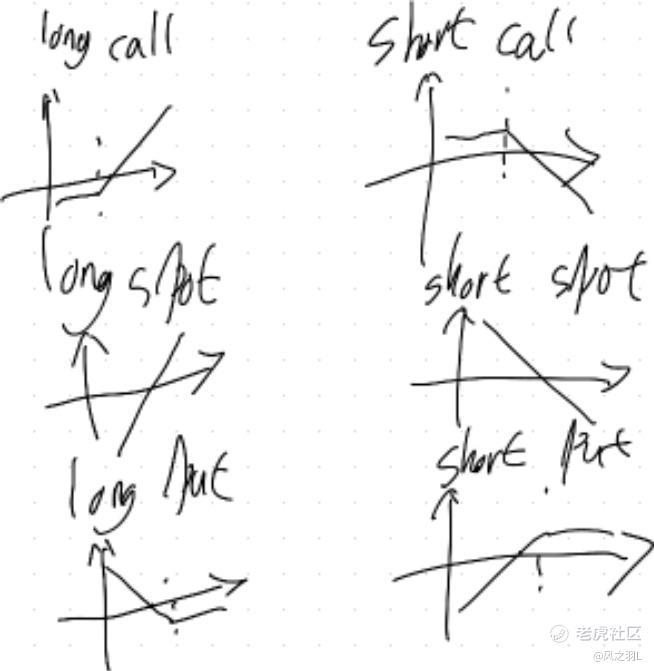 long call
short call
long spot
short spot
long put
short put
老虎社区
@风之羽L